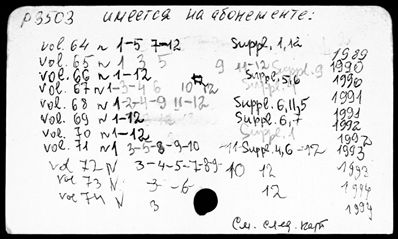 р3503 имеется на абонементе:
vol. 64 N 1-5 7-12 Suppl. 1, 12 1989
vol. 65 N 1 3 5 9 11-12 Suppl. 9 1990
vol. 66 N 1-12 Suppl. 5, 6 1990
vol. 67 N 1-3-4 6 10 12 1991
vol. 68 N 1-2-4-9 11-12 Suppl. 6, 11, 5 1991
vol. 69 N 1-12 Suppl. 6, 7 1992
vol. 70 N 1-12 Suppl. 1 1992
vol. 71 N 1 3-5-8-9-10 -11- Suppl. 4, 6 -12 1993
vol 72 N 3-4-5-7-8 9- 10 12 1993
vol 73 N 3-6 12 1994
vol 74 N 3 1994
См. след. карт